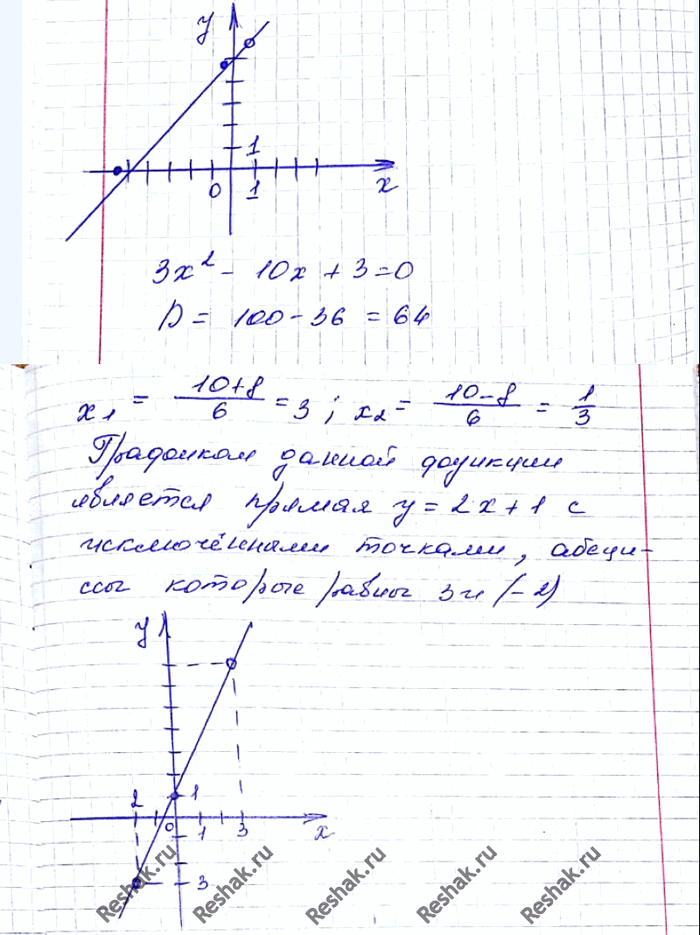 y
1
0 1 x
3x² - 10x + 3 = 0
D = 100 - 36 = 64
x₁ = (10+8)/6 = 3; x₂ = (10-8)/6 = 1/3
Графиком данной функции
является прямая y = 2x + 1 с
исключёнными точками, абсци-
ссы которые равны 3 и (-2)
y
2 1
0 1 3 x
3
Reshak.ru Reshak.ru Reshak.ru Reshak.ru Reshak.ru